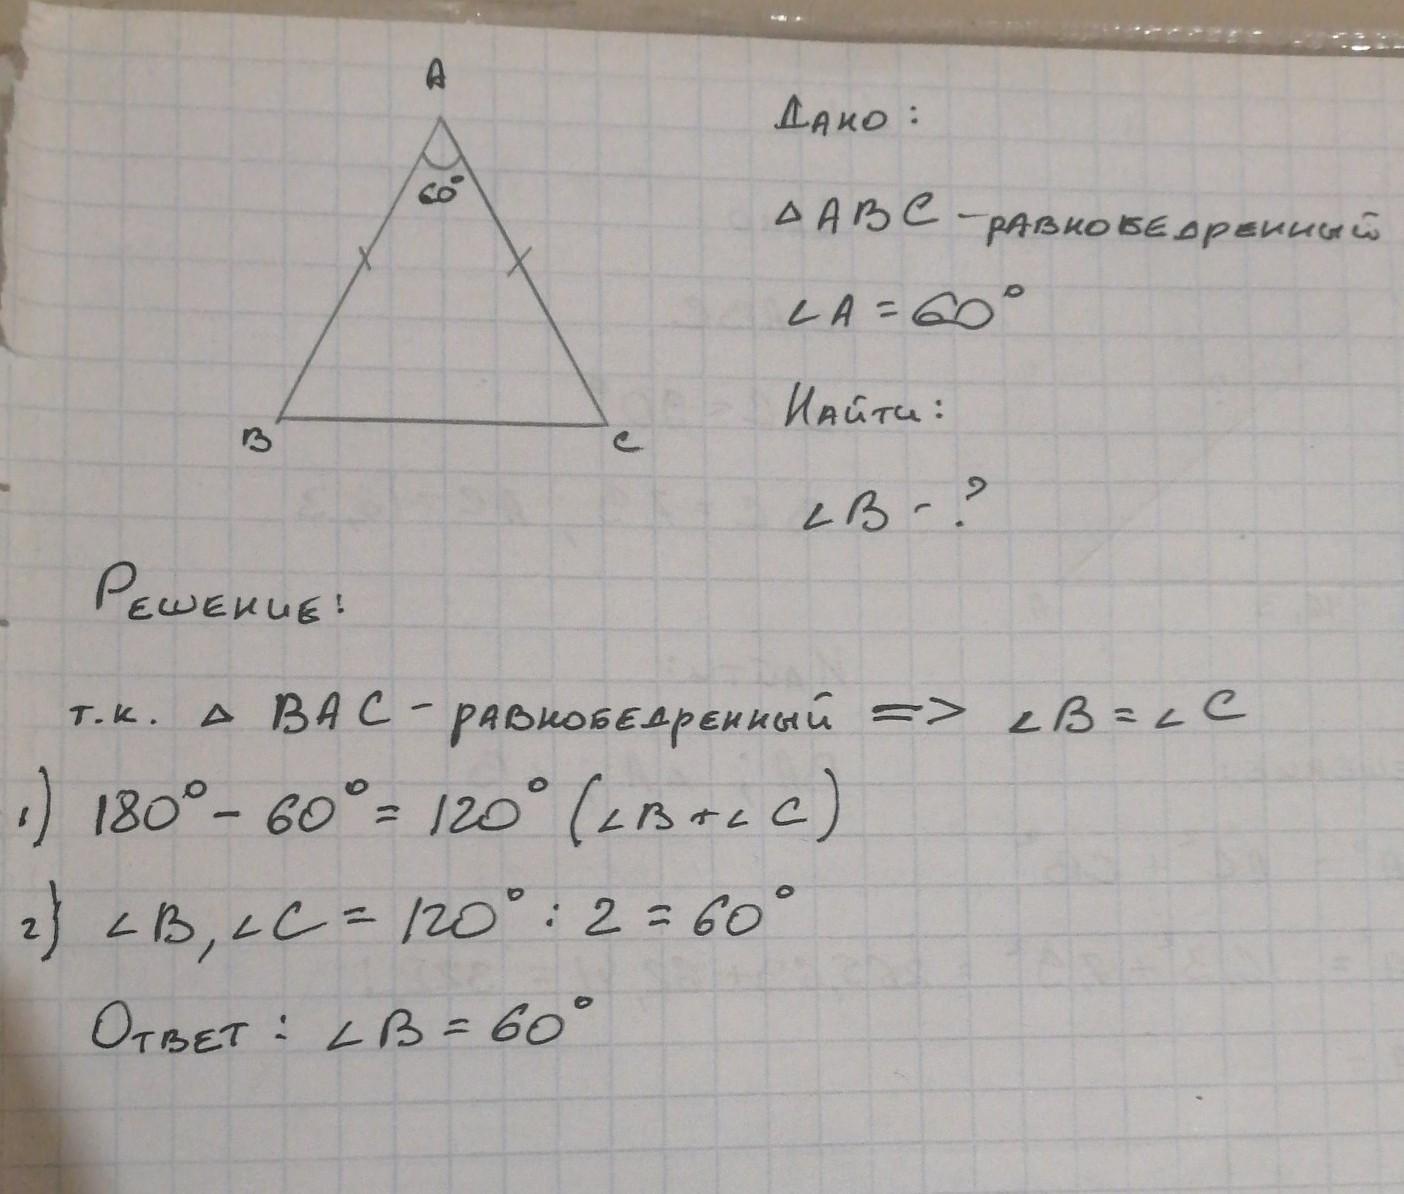 A
60°
B
C
Дано:
△ABC - равнобедренный
∠A = 60°
Найти:
∠B - ?
Решение:
т.к. △ BAC - равнобедренный => ∠B = ∠C
1) 180° - 60° = 120° (∠B + ∠C)
2) ∠B, ∠C = 120° : 2 = 60°
Ответ: ∠B = 60°